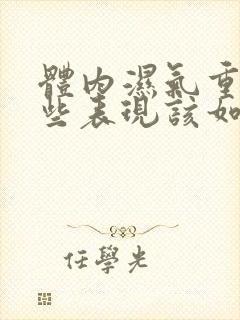 體內濕氣重
些表現該如
任學光